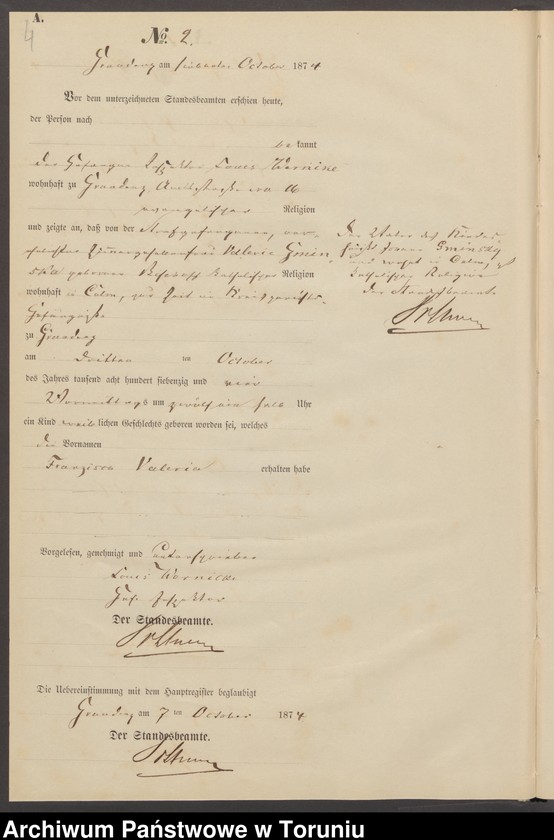 A.
4
No. 2.
Graudenz am siebenten October 1874
Vor dem unterzeichneten Standesbeamten erschien heute,
der Person nach
be kannt
der Gefangen Inspektor Louis Wernicke
wohnhaft zu Graudenz Amtsstraße no 16
evangelischer Religion
und zeigte an, daß von der Strafgefangenen, ver
ehelichten Zimmergesellenfrau Valeria Gmin
ska geborenen katholischer Religion
wohnhaft in Culm, zur Zeit im Kreisgerichts-
Gefängniße
zu Graudenz
am dritten ten October
des Jahres tausend acht hundert siebenzig und vier
Vormittags um zwölf ein halb Uhr
ein Kind weib lichen Geschlechts geboren worden sei, welches
die Vornamen
Franzisca Valeria erhalten habe
Der Vater des Kindes
heißt Gminsky
und wohnt in Culm, ist
katholischer Religion
Der Standesbeamte
Vorgelesen, genehmigt und unterschrieben
Louis Wernicke
Gef. Inspektor
Der Standesbeamte.
Die Uebereinstimmung mit dem Hauptregister beglaubigt
Graudenz am 7 ten October 1874
Der Standesbeamte.
Archiwum Państwowe w Toruniu